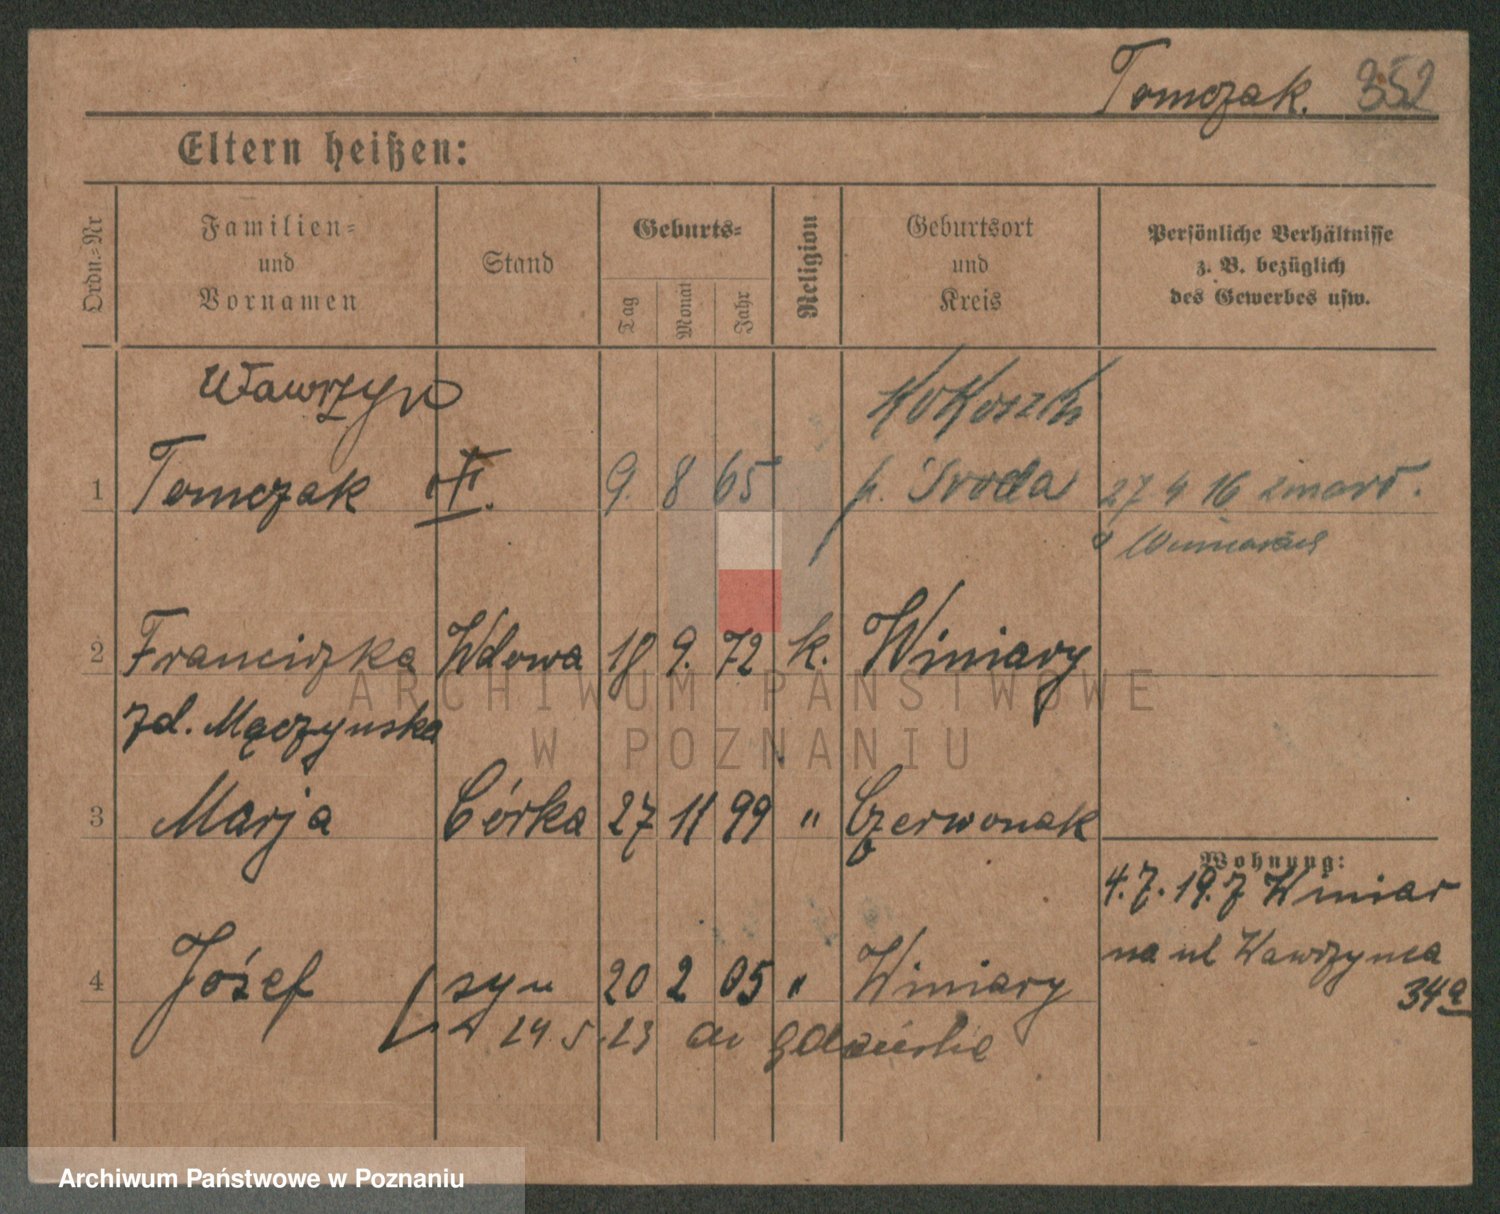 Tomczak. 352
Eltern heißen:
Ordn.-Nr
Familien- und Vornamen
Stand
Geburts-
Tag
Monat
Jahr
Religion
Geburtsort und Kreis
Persönliche Verhältnisse z. B. bezüglich des Gewerbes usw.
Wawrzyn Kokoszki
1 Tomczak 9. 8 65 p. Środa 27 4 16 zmarł.
w Winiarach
2 Franciszka Wdowa 18 9. 72 k. Winiary
zd. Mączynska
3 Marja Córka 27 11 99 " Czerwonak
Wohnung:
4. 7. 19. 7 Winiar
na ul Wawrzynca
34a
4 Józef syn 20 2 05 " Winiary
24. 5. 23
ARCHIWUM PAŃSTWOWE
W POZNANIU
Archiwum Państwowe w Poznaniu